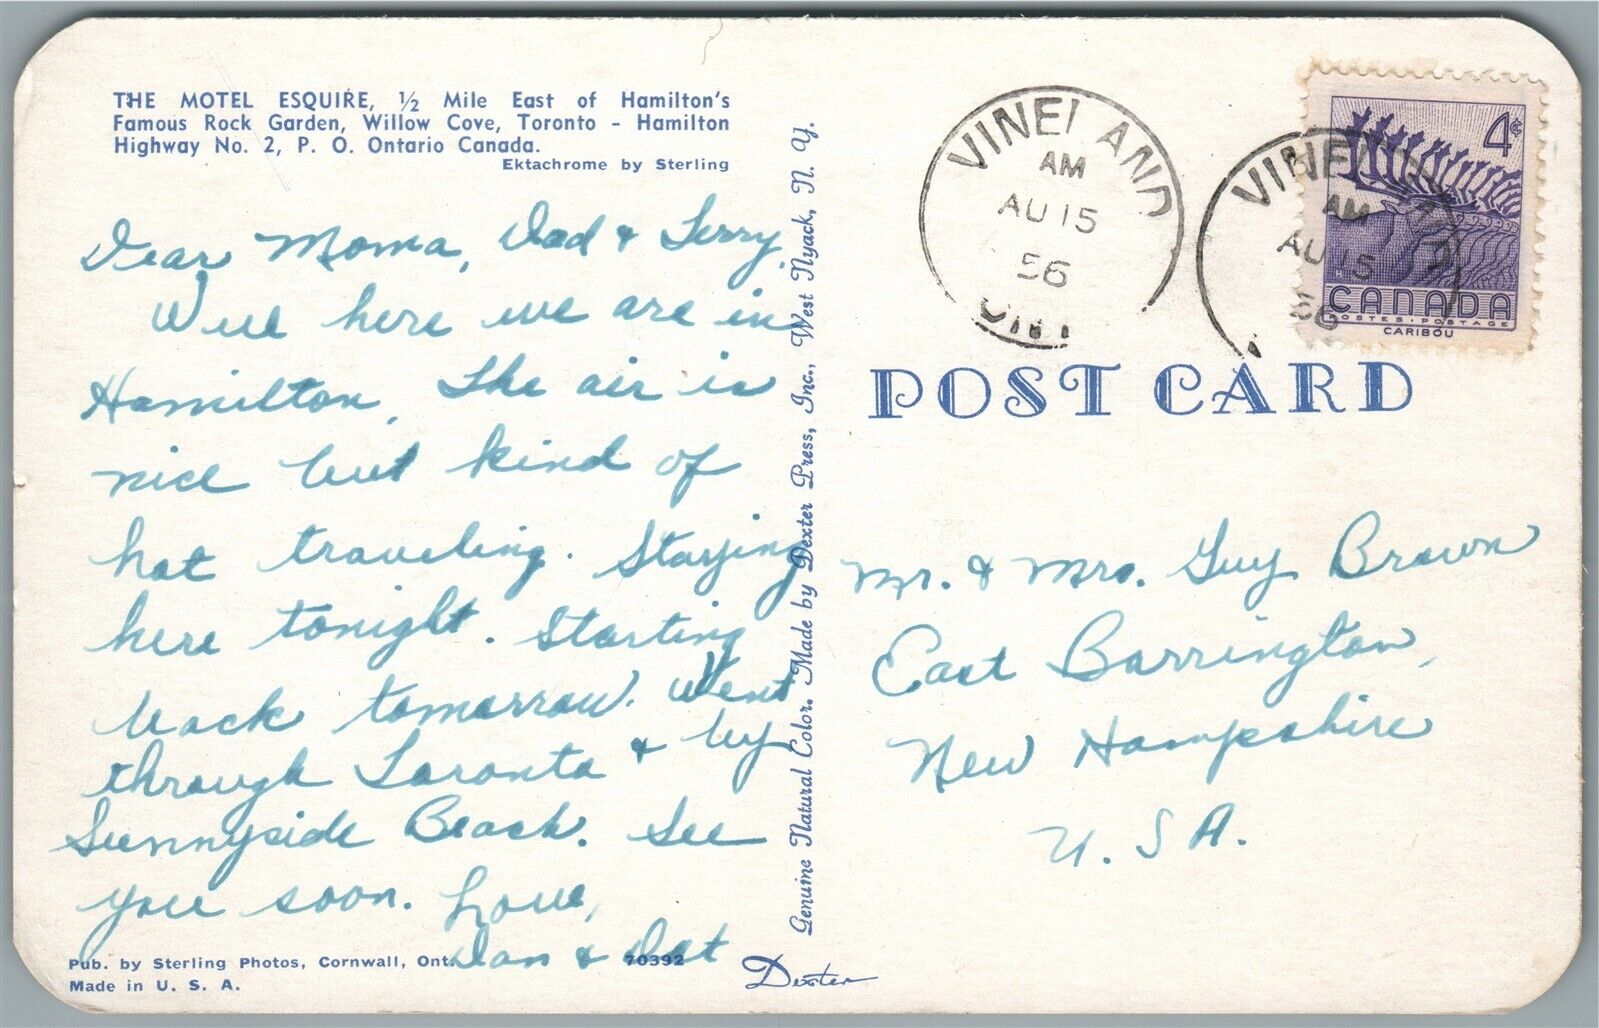 THE MOTEL ESQUIRE, ½ Mile East of Hamilton's
Famous Rock Garden, Willow Cove, Toronto - Hamilton
Highway No. 2, P. O. Ontario Canada.
Ektachrome by Sterling
Dear Moma, Dad & Terry,
Well here we are in
Hamilton. The air is
nice but kind of
hot traveling. Staying
here tonight. Starting
back tomorrow. Went
through Toronto & by
Sunnyside Beach. See
you soon. Love,
& Dot
Pub. by Sterling Photos, Cornwall, Ont.
70392
Made in U. S. A.
Genuine Natural Color. Made by Dexter Press, Inc., West Nyack, N. Y.
Dexter
VINELAND
AM
AU 15
56
ONT
VINEL
AM
AU 15
56
4¢
CANADA
POSTES - POSTAGE
CARIBOU
POST CARD
Mr. & Mrs. Guy Brown
East Barrington,
New Hampshire
U.S.A.